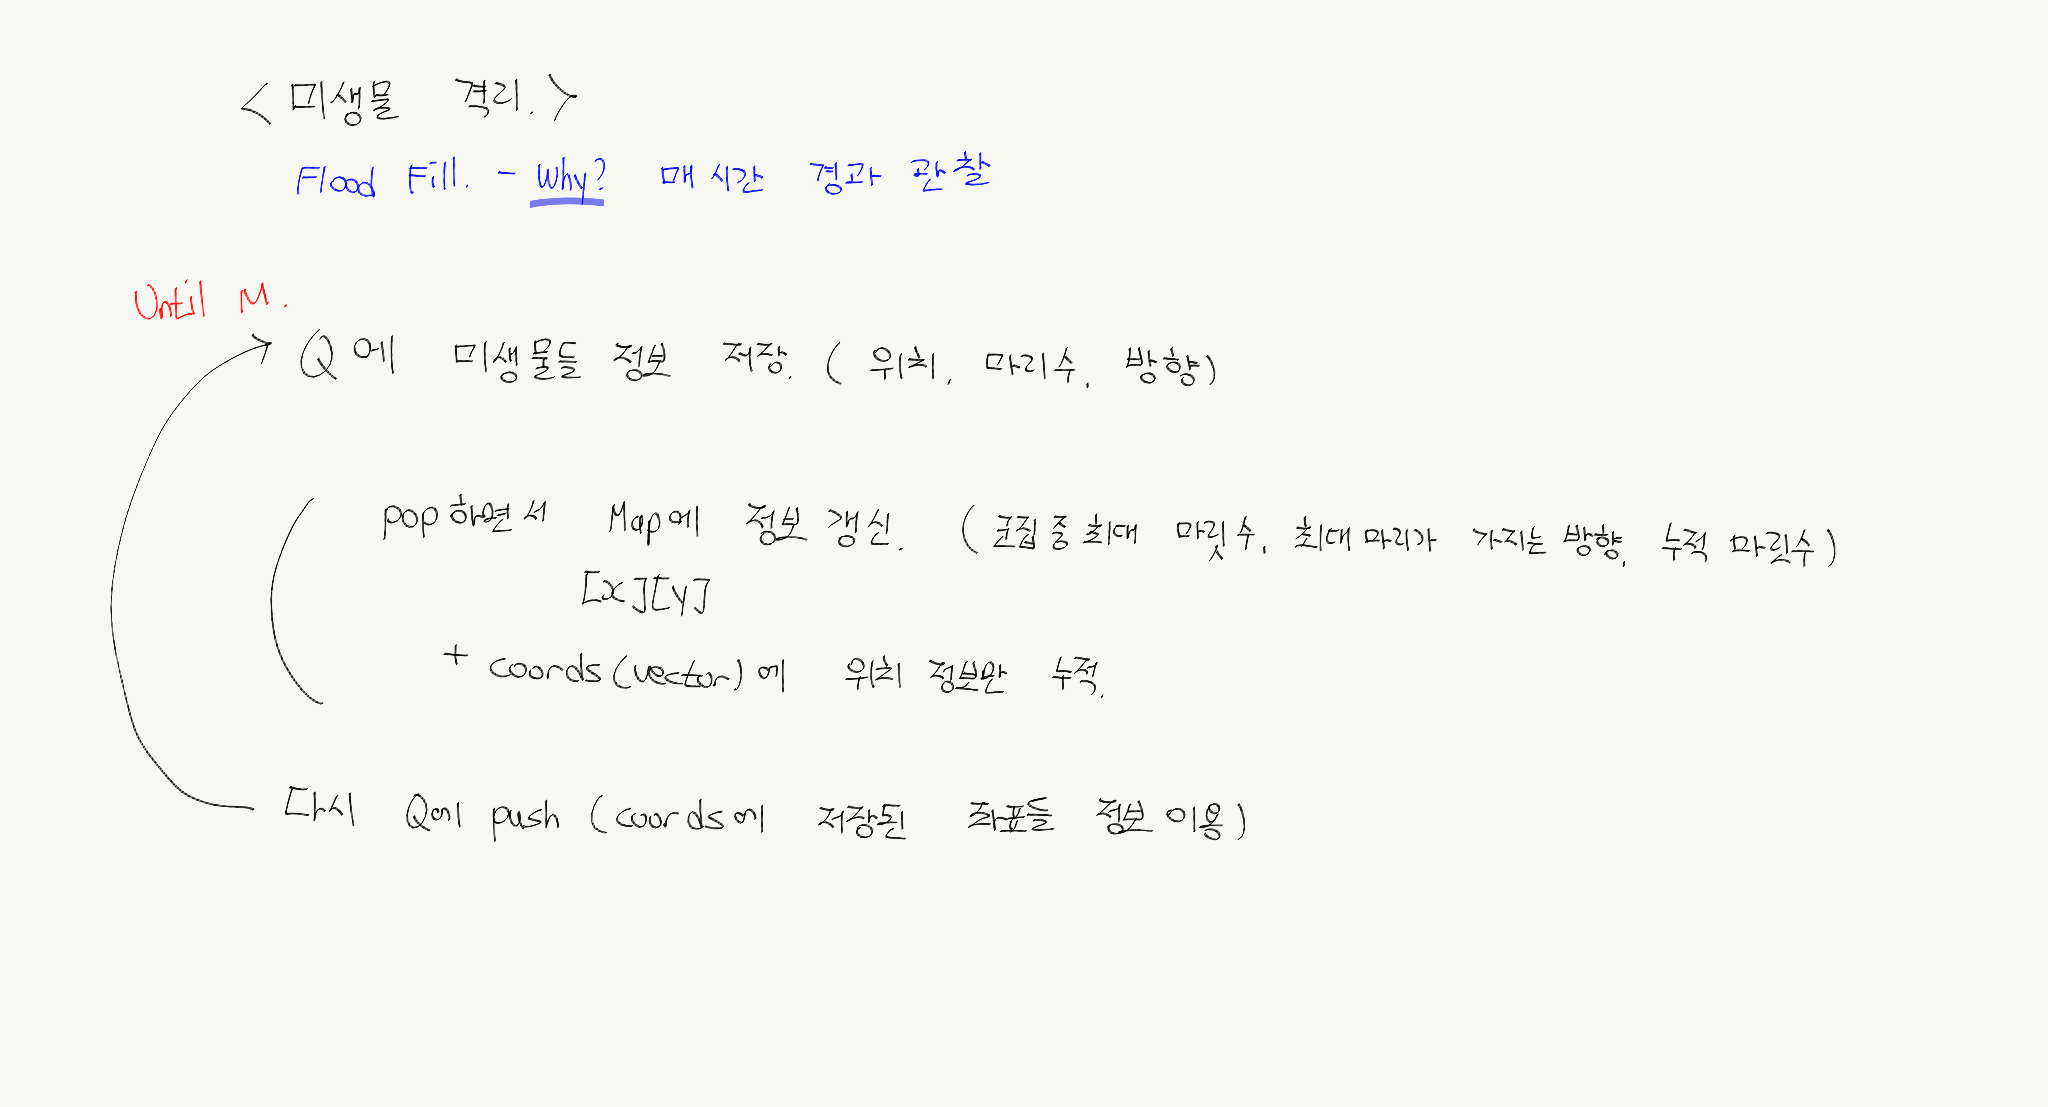 < 미생물 격리. >
Flood Fill. - Why? 매 시간 경과 관찰
Until M.
Q에 미생물들 정보 저장. ( 위치, 마리수, 방향)
pop하면서 Map에 정보 갱신. ( 군집 중 최대 마릿수, 최대 마리가 가지는 방향, 누적 마릿수 )
[x][y]
+ coords(vector)에 위치 정보만 누적.
다시 Q에 push (coords에 저장된 좌표들 정보 이용)